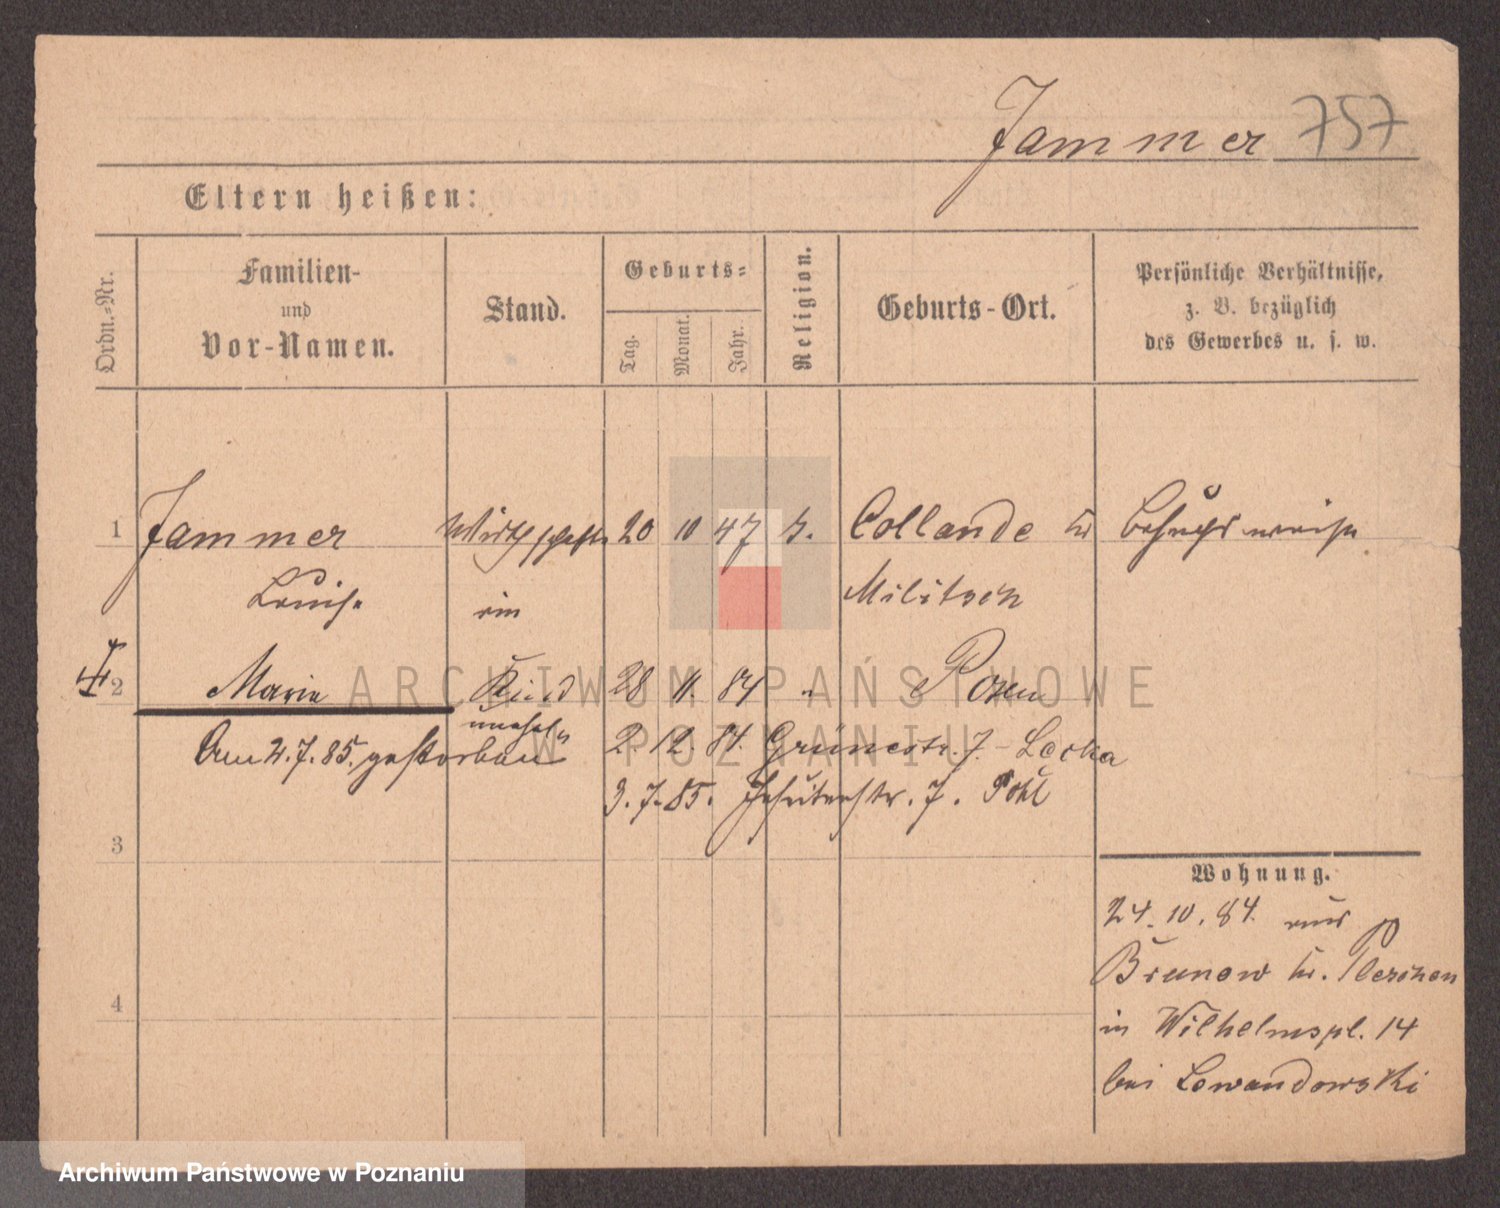 Jammer 757
Eltern heißen:
Ordn.-Nr.
Familien-
und
Vor-Namen.
Stand.
Geburts-
Tag.
Monat.
Jahr.
Religion.
Geburts-Ort.
Persönliche Verhältnisse,
z. B. bezüglich
des Gewerbes u. s. w.
1 Jammer Wirthschafte 20 10 47 Collande Kr Besuchsweise
Louise rin Militsch
2 Marie Kind 28 11. 84 " Posen
unehel.
Am 2.7.85. gestorben 2. 12. 84. Grünestr. 7 -
3. 7. 85. Jesuitenstr. 7. Pohl
3
Wohnung.
24. 10. 84. aus
Brunow Kr. Pleschen
4
in Wilhelmspl. 14
bei Lewandowski
ARCHIWUM PAŃSTWOWE
W POZNANIU
Archiwum Państwowe w Poznaniu